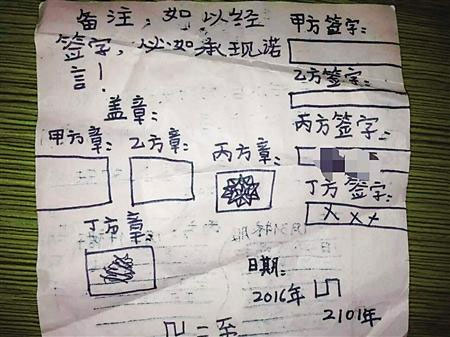 备注；如以经
签字，以如承现诺
言！
盖章：
甲方签字：
乙方签字：
丙方签字：
丁方签字：
×××
甲方章：
乙方章：
丙方章：
丁方章：
日期：
2016年
2101年
二至